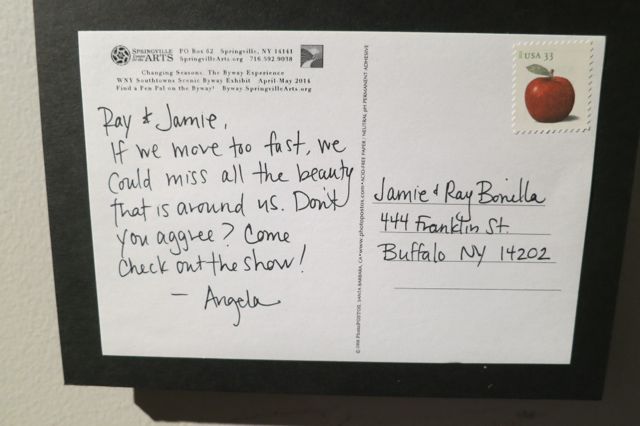 SPRINGVILLE
Center for the
ARTS
PO Box 62 Springville, NY 14141
SpringvilleArts.org 716.592.9038
Changing Seasons: The Byway Experience
WNY Southtowns Scenic Byway Exhibit April-May 2014
Find a Pen Pal on the Byway! Byway.SpringvilleArts.org
Ray & Jamie,
If we move too fast, we
could miss all the beauty
that is around us. Don't
you aggree? Come
check out the show!
— Angela
© 1998 PhotoPOSTOS, SANTA BARBARA, CA • www.photopostos.com • ACID-FREE PAPER / NEUTRAL pH PERMANENT ADHESIVE
USA 33
Jamie & Ray Bonilla
444 Franklin St.
Buffalo NY 14202